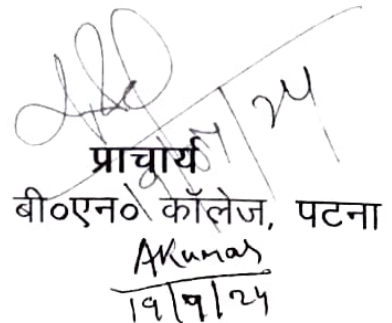 प्राचार्य
बी०एन० कॉलेज, पटना
AKumar
19/9/24